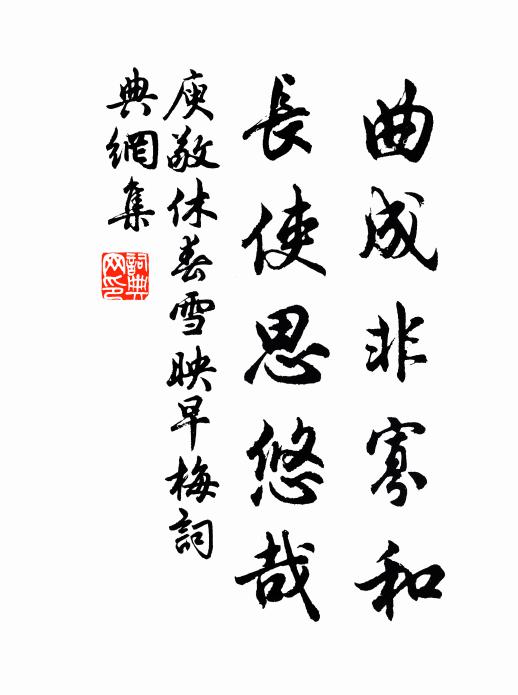 曲成非寡和
長使思悠哉
庾敬休春雪映早梅詞
典網集
詞典
网印